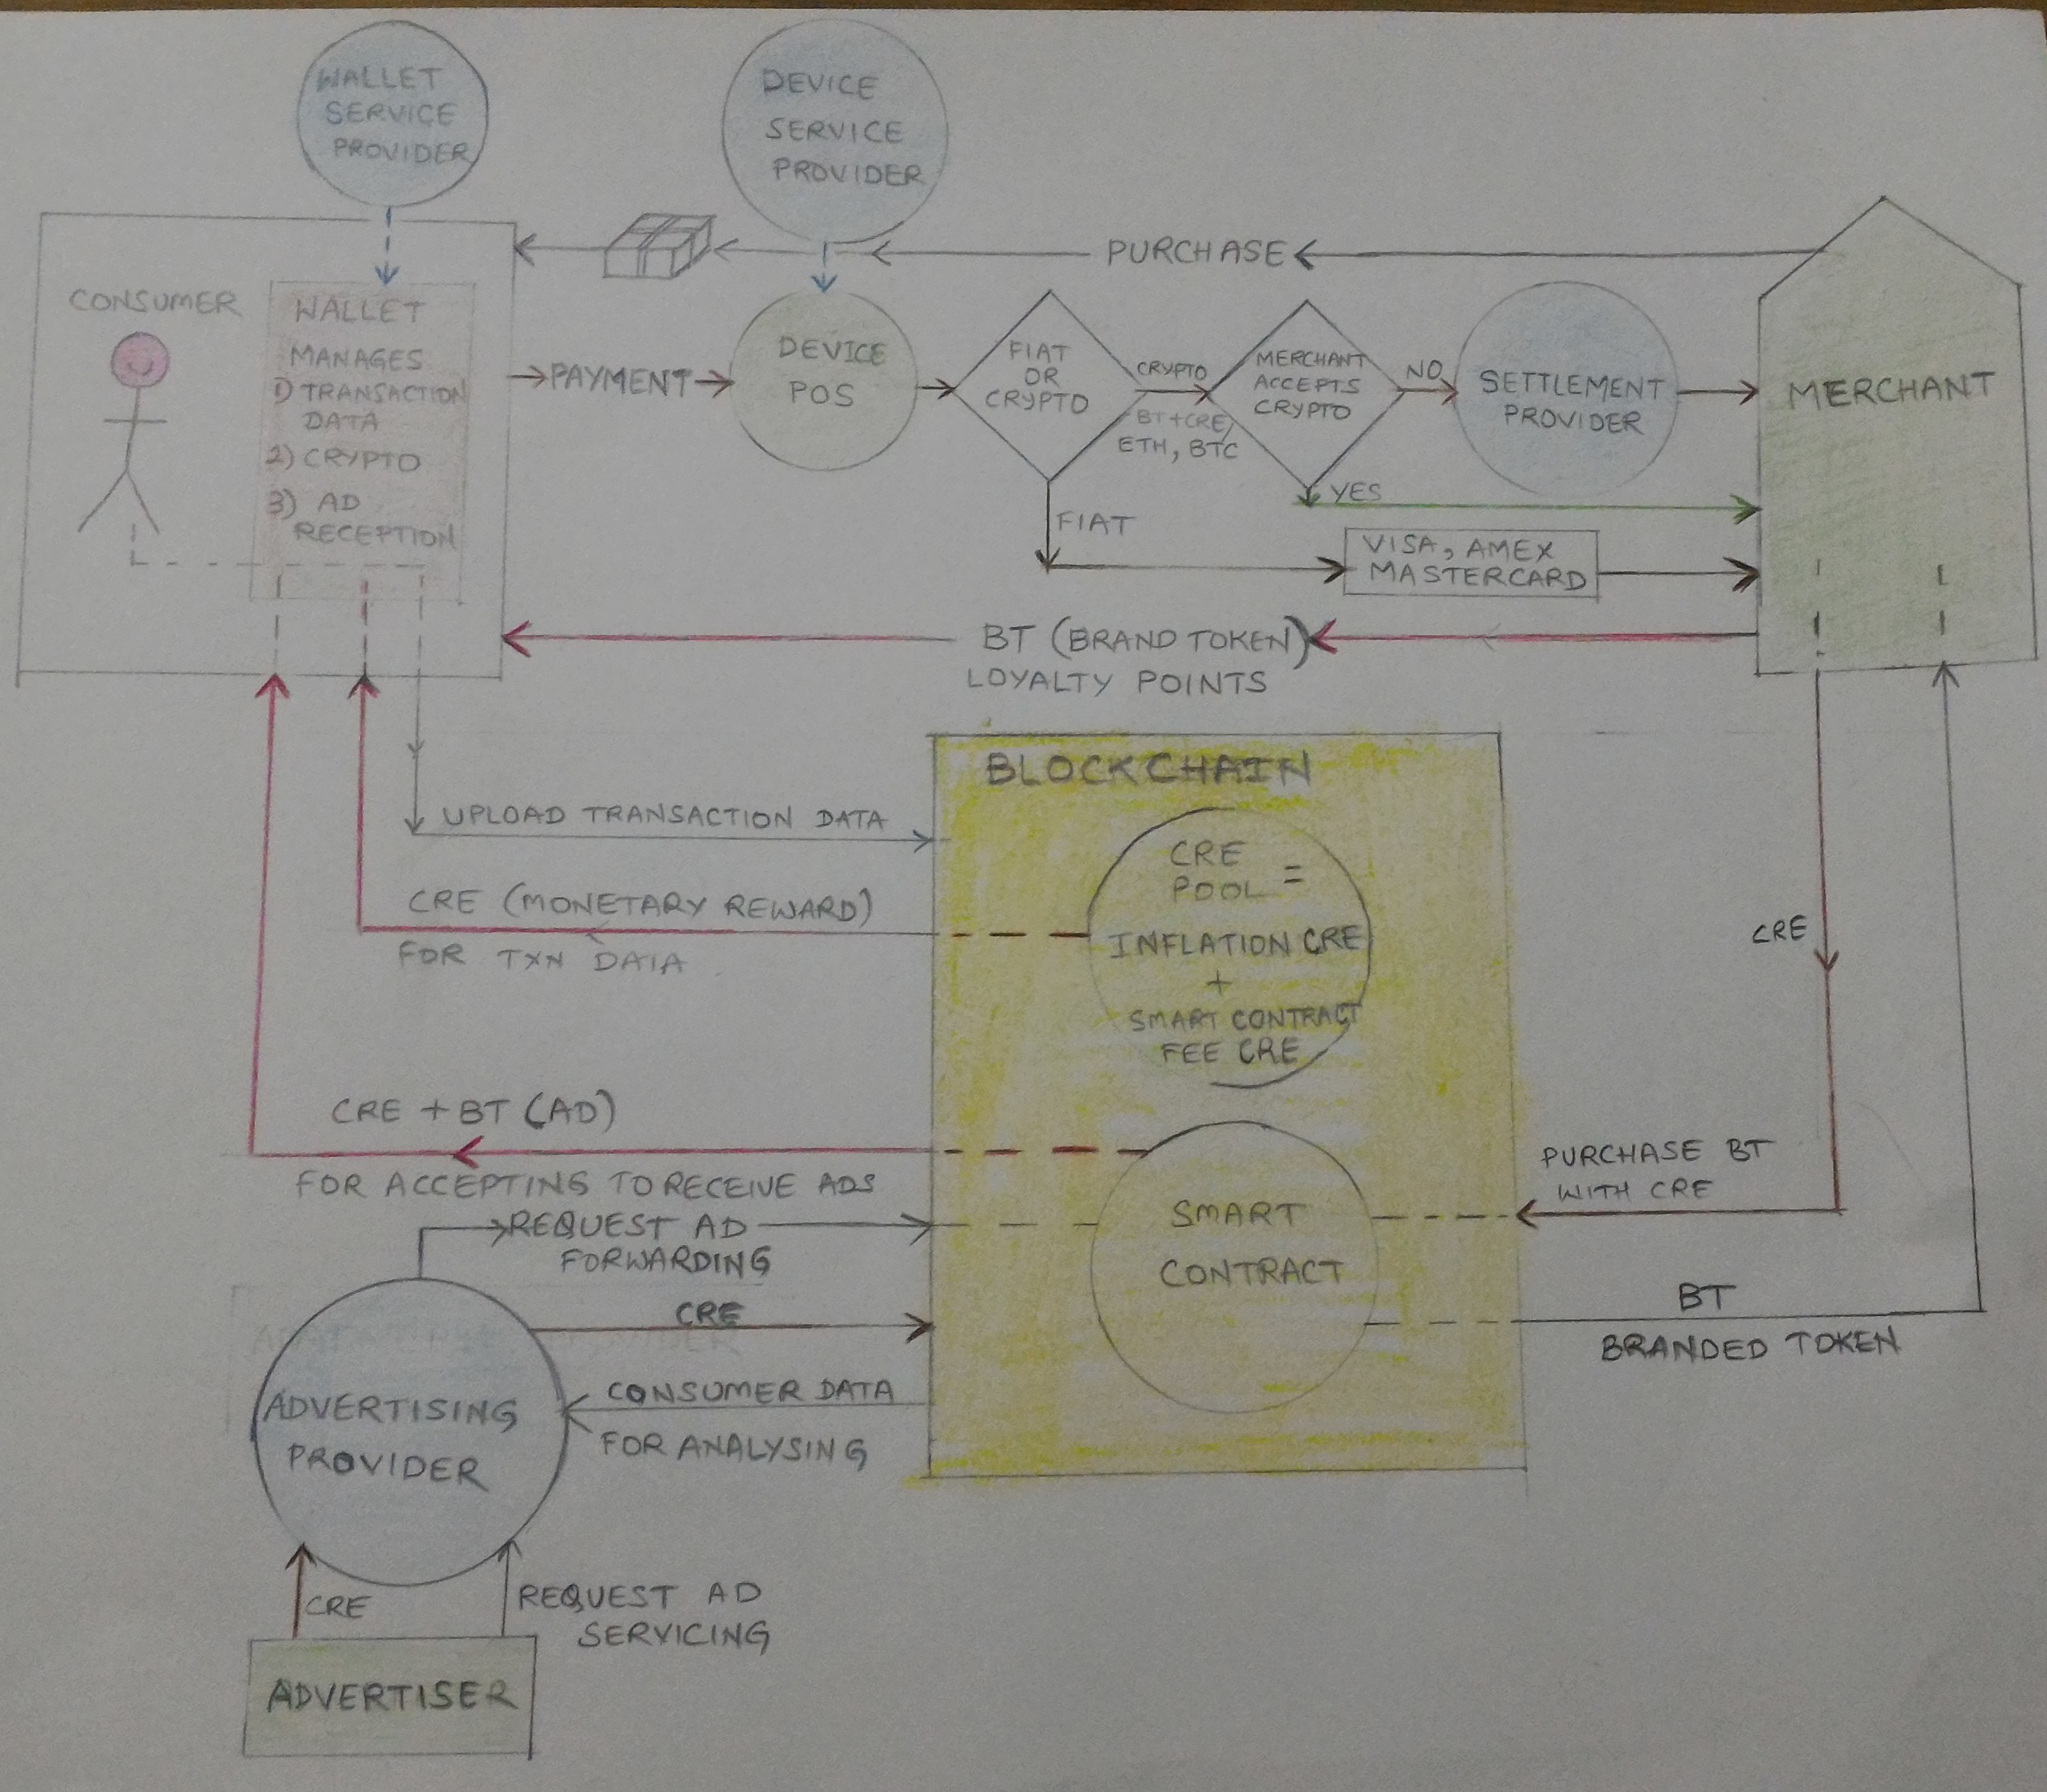 WALLET
SERVICE
PROVIDER
DEVICE
SERVICE
PROVIDER
PURCHASE
CONSUMER
WALLET
MANAGES
1) TRANSACTION
DATA
2) CRYPTO
3) AD
RECEPTION
PAYMENT
DEVICE
POS
FIAT
OR
CRYPTO
CRYPTO
BT+CRE/
ETH, BTC
MERCHANT
ACCEPTS
CRYPTO
NO
SETTLEMENT
PROVIDER
MERCHANT
YES
FIAT
VISA, AMEX
MASTERCARD
BT (BRAND TOKEN)
LOYALTY POINTS
BLOCKCHAIN
UPLOAD TRANSACTION DATA
CRE
POOL =
INFLATION CRE
+
SMART CONTRACT
FEE CRE
CRE (MONETARY REWARD)
FOR TXN DATA
CRE
CRE + BT (AD)
FOR ACCEPTING TO RECEIVE ADS
PURCHASE BT
WITH CRE
REQUEST AD
FORWARDING
SMART
CONTRACT
CRE
BT
BRANDED TOKEN
CONSUMER DATA
FOR ANALYSING
ADVERTISING
PROVIDER
CRE
REQUEST AD
SERVICING
ADVERTISER